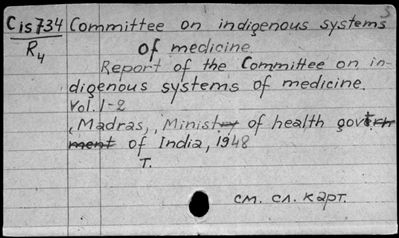 Cis734 Committee on indigenous systems
R4 of medicine.
Report of the Committee on in-
digenous systems of medicine.
Vol. 1-2
, Madras,, Ministry of health govern
ment of India, 1948
T.
см. сл. карт.